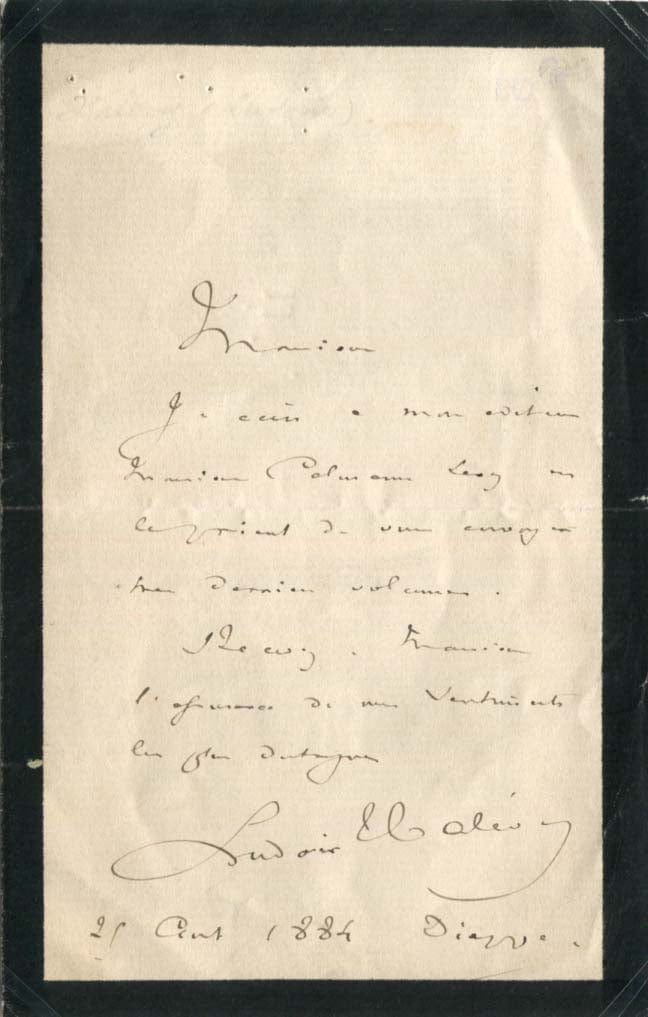 Monsieur
J'écris à mon éditeur
Monsieur Calmann Levy en
le priant de vous envoyer
mes derniers volumes.
Recevez, Monsieur
l'assurance de mes sentiments
les plus distingués
Ludovic Halévy
Août 1884 Dieppe.